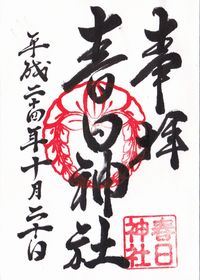 奉拝
春日神社
平成二十四年十月二十日
春日
神社